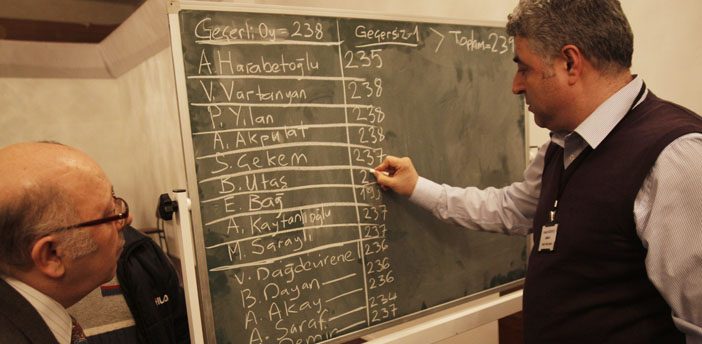 Geçerli Oy = 238 Geçersiz=1 > Toplam=239
A. Harabetoğlu 235
V. Vartanyan 238
P. Yılan 238
A. Akpulat 238
S. Çekem 237
B. Utaş 2
E. Bağ 199
A. Kaytanlıoğlu 237
M. Saraylı 237
V. Dağdevirene 236
B. Dayan 236
A. Akay 236
A. Saraf 234
Demir 237